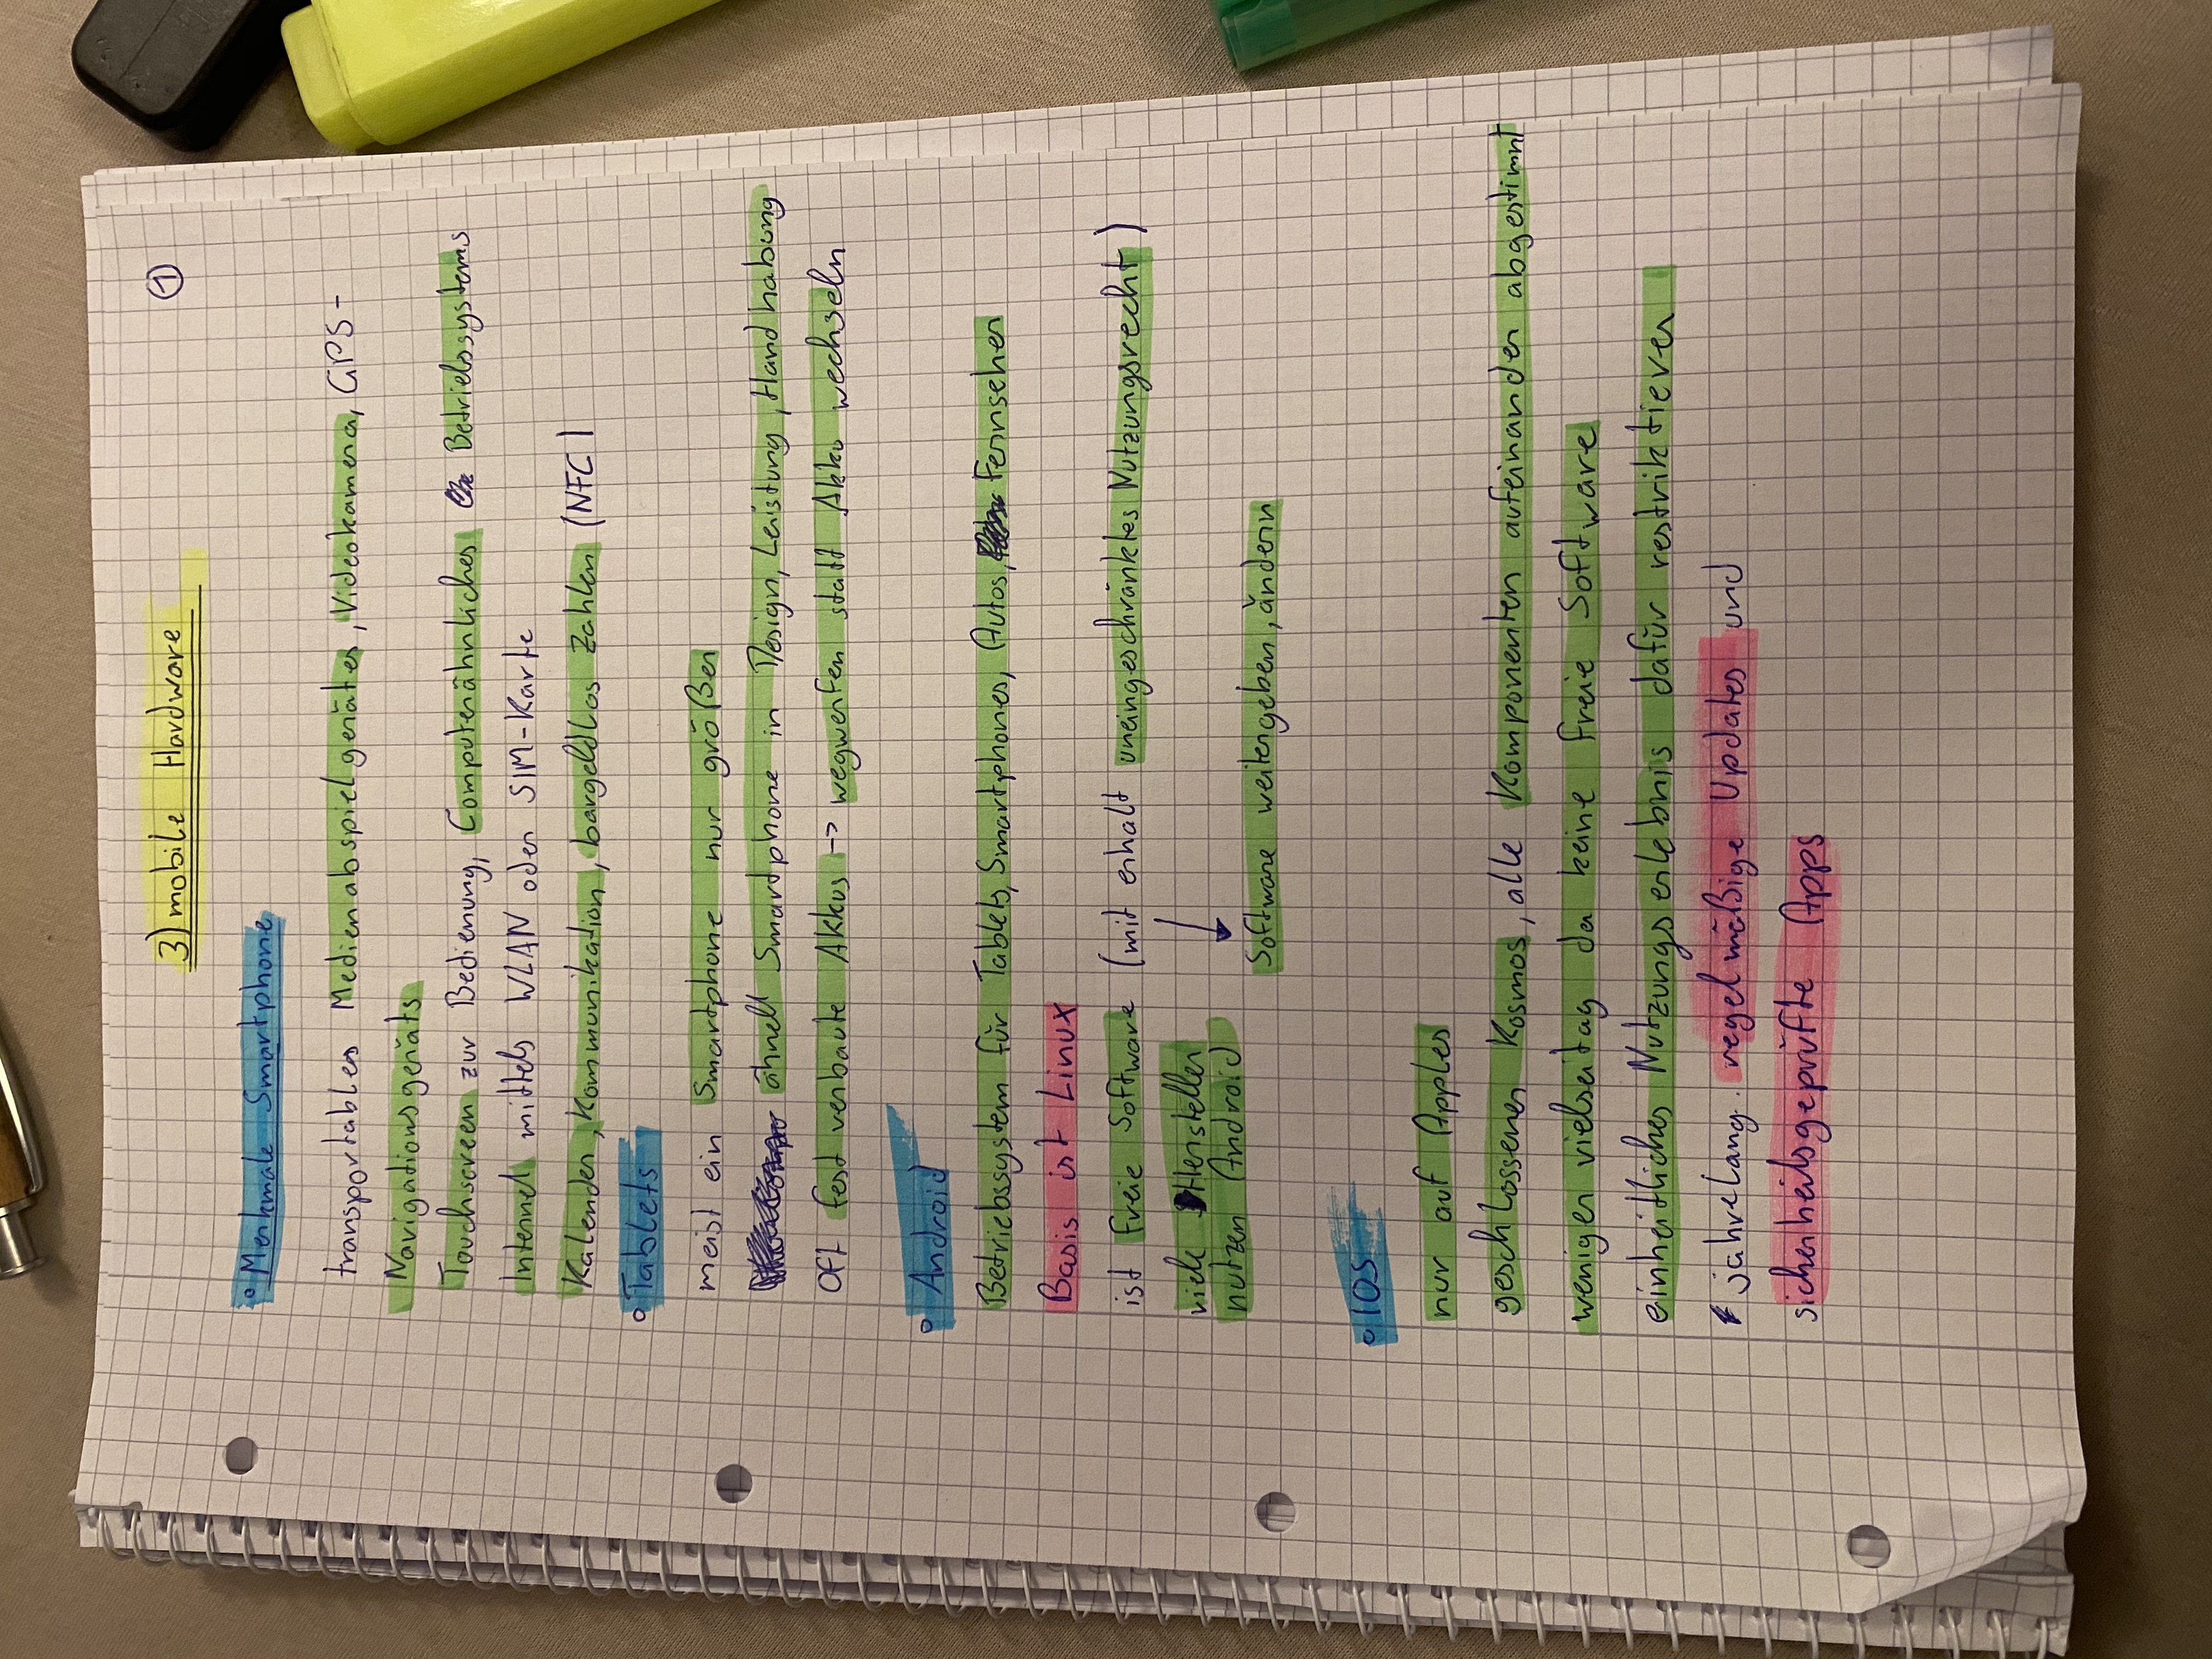 3) mobile Hardware
①
° Merkmale Smartphone
transportables Medienabspielgerätes, Videokamera, GPS-
Navigationsgeräts
Touchscreen zur Bedienung, Computerähnliches Betriebssystems
Internet mittels WLAN oder SIM-Karte
Kalender, Kommunikation, bargeldlos zahlen (NFC)
° Tablets
meist ein Smartphone nur größer
ähnelt Smartphone in Design, Leistung, Handhabung
oft fest verbaute Akkus -> wegwerfen statt Akku wechseln
° Android
Betriebssystem für Tablets, Smartphones, Autos, Fernseher
Basis ist Linux
ist freie Software (mit erhalt uneingeschränktes Nutzungsrecht)
viele Hersteller
nutzen Android
Software weitergeben, ändern
° IOS
nur auf Apples
geschlossener Kosmos, alle Komponenten aufeinander abgestimmt
weniger vielseitag da keine freie Software
einheitliches Nutzungserlebnis dafür restriktiever
jahrelang regelmäßige Updates und
sicherheitsgeprüfte Apps